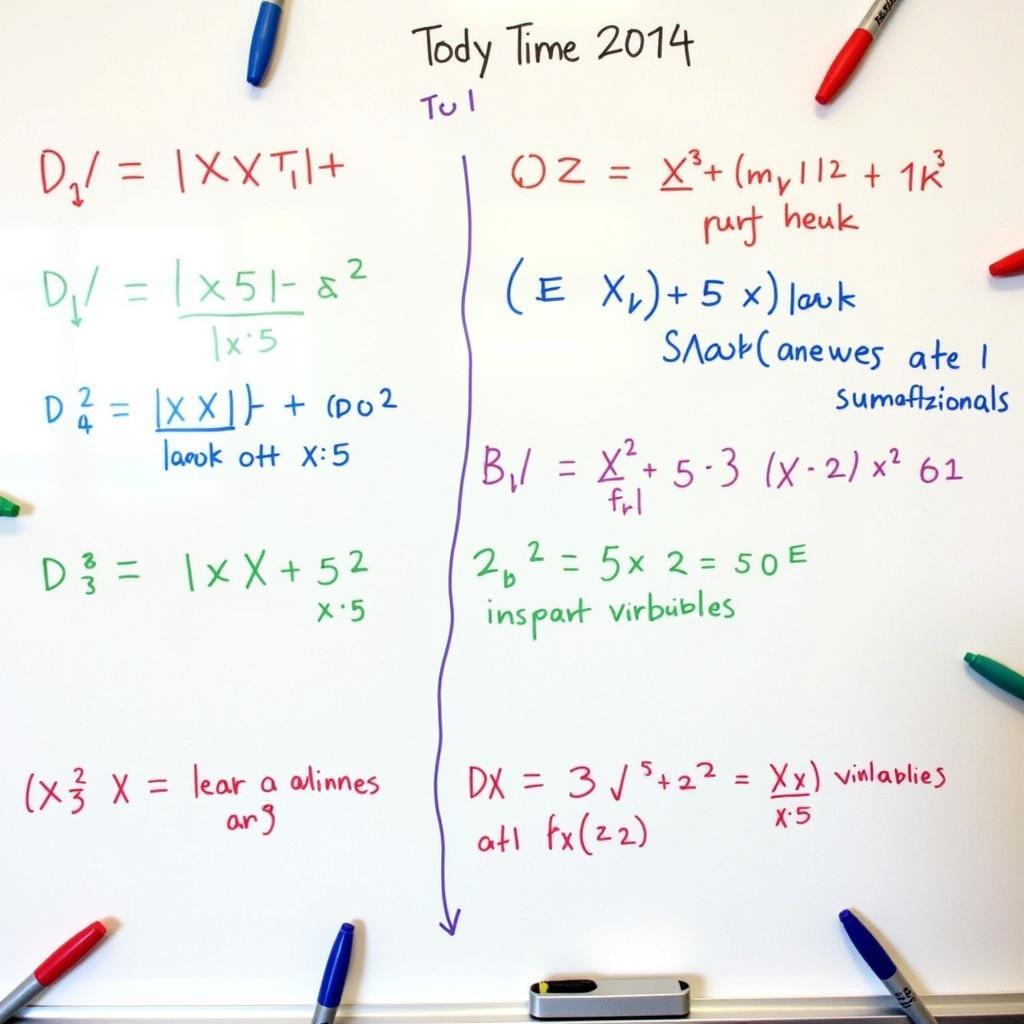 Tody Time 2014
Tu 1
D↓/ = |XXT₁|+
D↓/ = |x5|- 2
1x·5
D 2/4 = |XX|} + (DO2
laook oft x:5
D 3 = 1xX + 52
x·5
(X 2/3 X = lear a alinnes
arg
OZ = X³+ (mv112 + 1k³
purf heuk
(E Xv)+ 5 x) look
(anewes ate 1
sumaftzionals
Bv/ = X²+ 5·3 (X-2) x² 61
frl
2b² = 5x 2 = 50E
inspart virbuibles
DX = 3√5+2² = Xx) vinlablies
x·5
atl fx(z2)